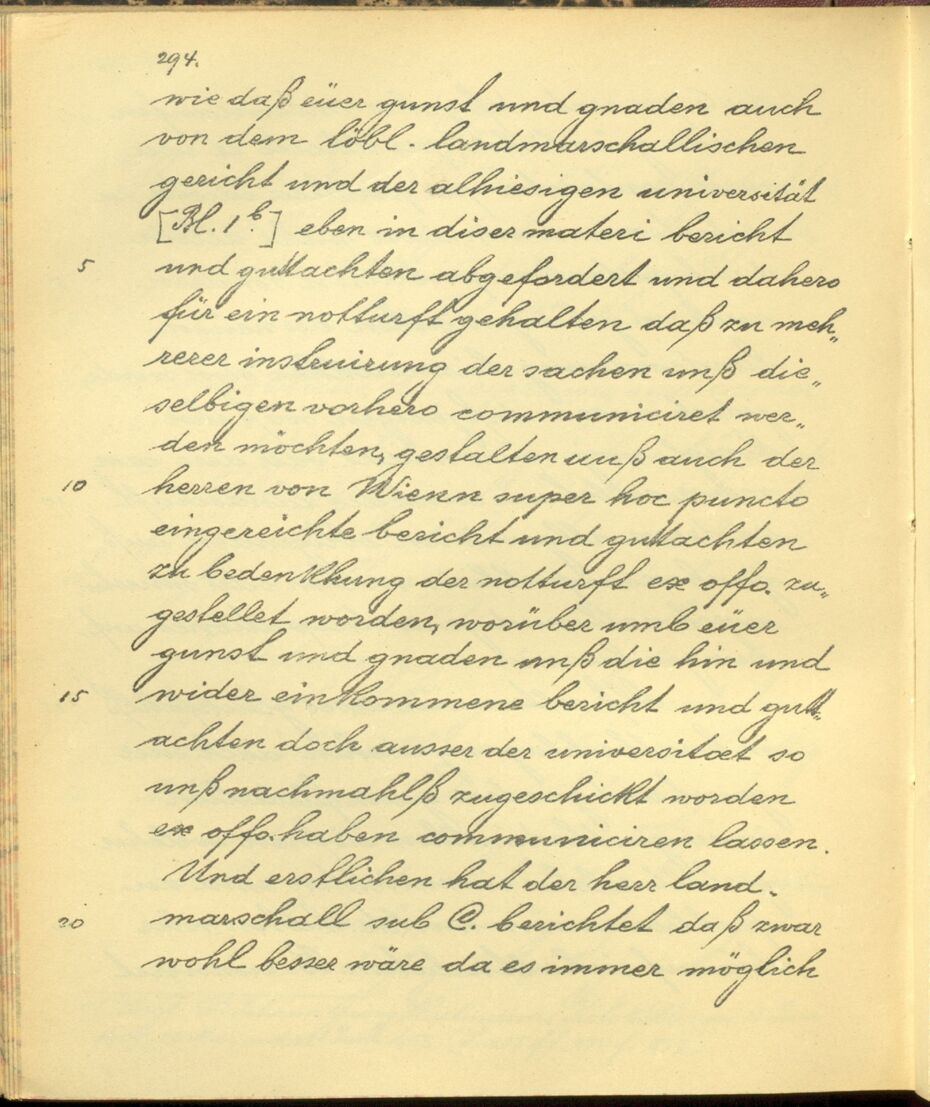 294.
wie daß eüer gunst und gnaden auch
von dem löbl. landmarschallischen
gericht und der alhiesigen universität
[Bl. 1 b.] eben in diser materi bericht
5 und guttachten abgefordert und dahero
für ein notturft gehalten daß zu meh„
rerer instruirung der sachen unß die„
selbigen vorhero communiciret wer„
den möchten, gestalten unß auch der
10 herren von Wienn super hoc puncto
eingereichte bericht und guttachten
zu bedenkhung der notturft ex offo. zu„
gestellet worden, worüber umb eüer
gunst und gnaden unß die hin und
15 wider einkommene bericht und gutt„
achten doch ausser der universitæt so
unß nachmahlß zugeschickt worden
ex offo. haben communiciren lassen.
Und erstlichen hat der herr land„
20 marschall sub C. berichtet daß zwar
wohl besser wäre da es immer möglich